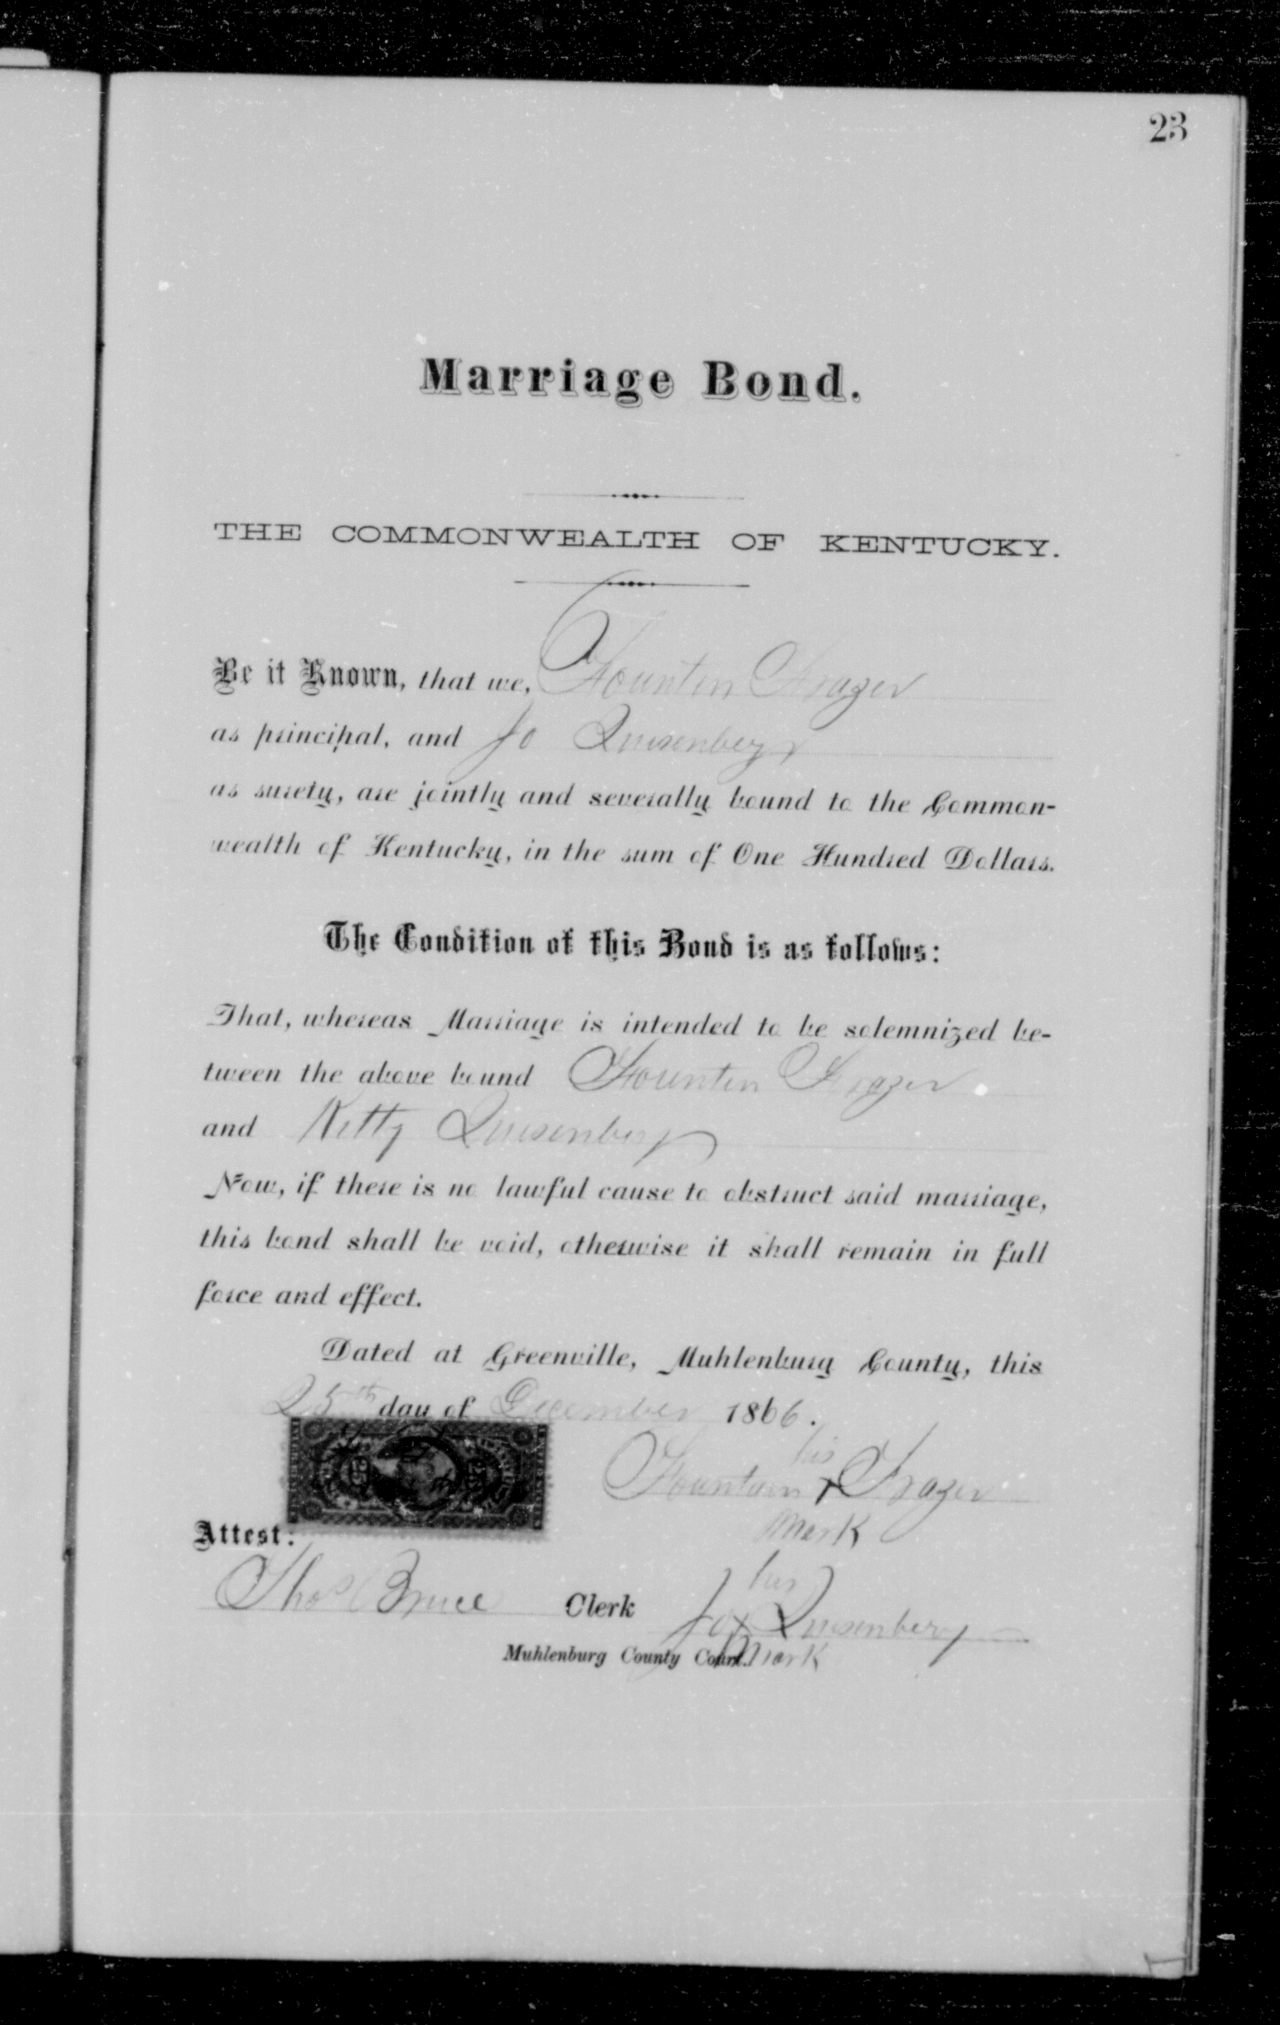 23
Marriage Bond.
THE COMMONWEALTH OF KENTUCKY.
Be it Known, that we, Founten Frazer
as principal, and Jo Quisenbery
as surety, are jointly and severally bound to the Common-
wealth of Kentucky, in the sum of One Hundred Dollars.
The Condition of this Bond is as follows:
That, whereas Marriage is intended to be solemnized be-
tween the above bound Founten Frazer
and Kitty Quisenbery
Now, if there is no lawful cause to obstruct said marriage,
this bond shall be void, otherwise it shall remain in full
force and effect.
Dated at Greenville, Muhlenburg County, this
25th day of December 1866.
his
Fountain x Frazer
mark
Attest:
Thos Bruce Clerk
Muhlenburg County Court.
his
Jo x Quisenbery
mark